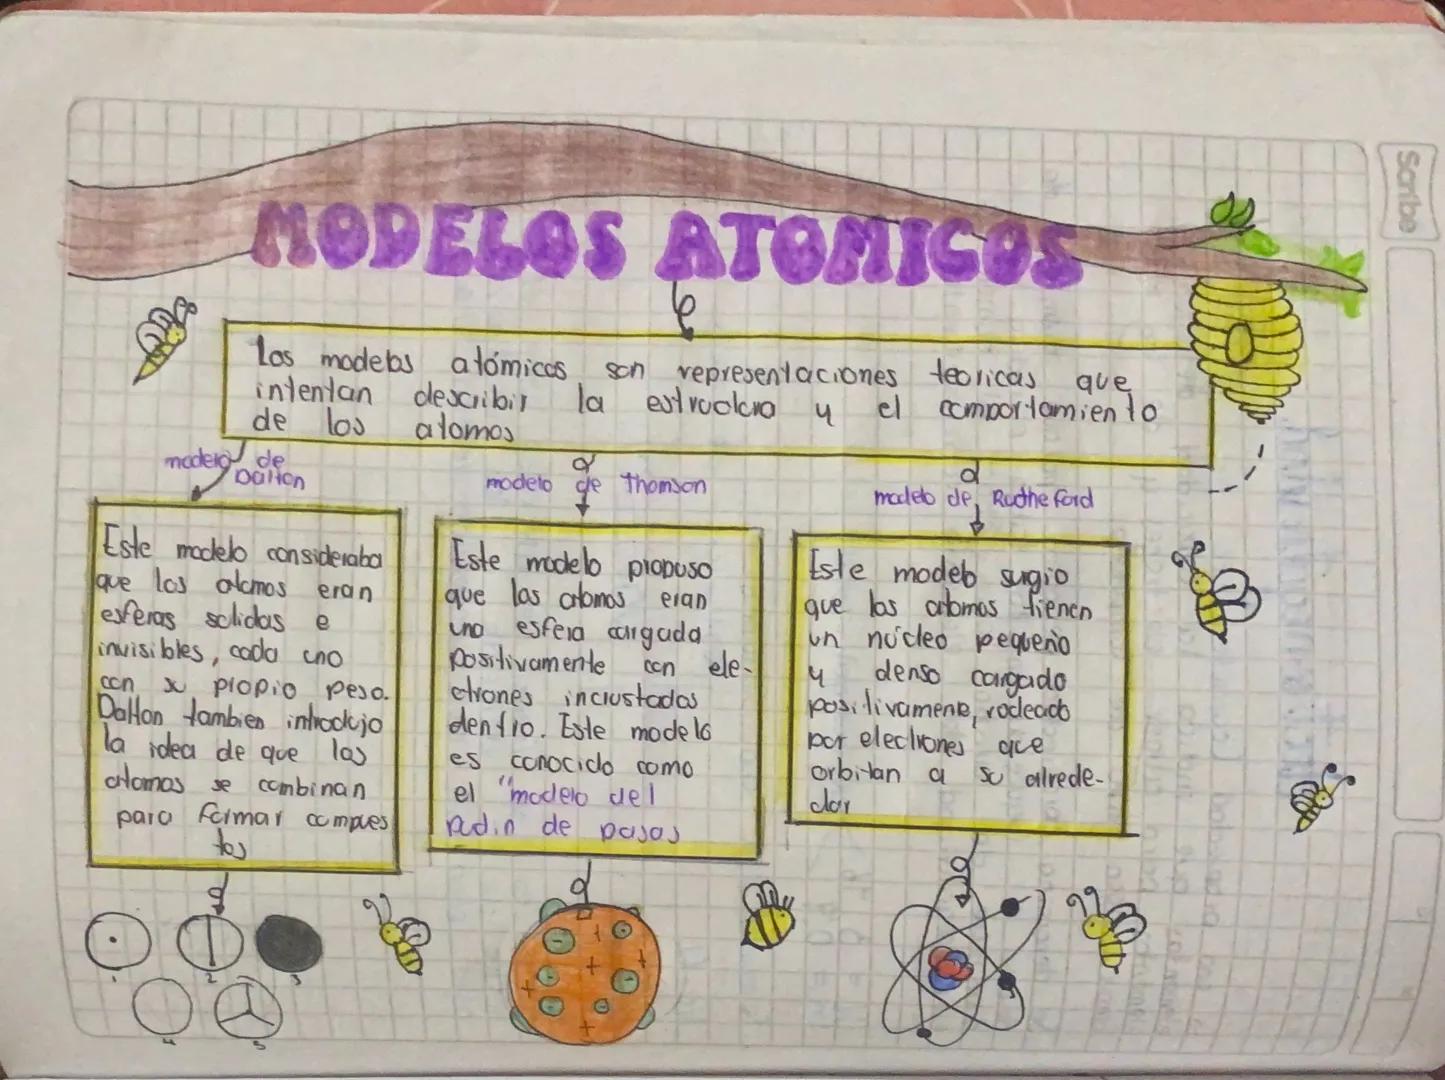 MODELOS ATOMICOS
Los modelos atómicos son representaciones teoricas que
intentan describir la estructura y el comportamiento
de los atomos
modelo de
Dalton
modelo de Thomson
modelo de Rutheford
Este modelo consideraba
que los atomos eran
esferas solidas e
invisibles, cada uno
con su propio peso.
Dalton tambien introdujo
la idea de que los
atomos se combinan
para formar compues
tos
Este modelo propuso
que los atomos eran
una esfera cargada
positivamente con ele-
ctrones incrustados
dentro. Este modelo
es conocido como
el "modelo del
pudin de pasas
Este modelo surgio
que los atomos tienen
un núcleo pequeño
y denso cargado
positivamente, rodeado
por electrones que
orbitan a su alrede-
dor
1
2
3
4
5
Scribe